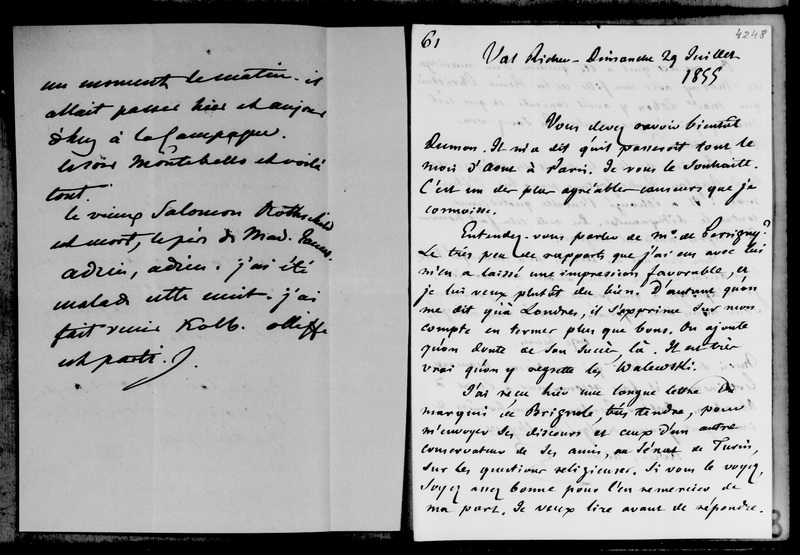 un moment le matin. il
allait passer hier et aujour
d'hui à la Campagne.
le soir Montebello et voilà
tout.
le vieux Salomon Rothschild
est mort, le père de Mad. James.
adieu, adieu. j'ai été
malade cette nuit. j'ai
fait venir Kolb. olliffe
est parti.
61
4248
Val Richer - Dimanche 29 Juillet
1855
Vous devez ravoir bientôt
Dumon. Il m'a dit qu'il passeroit tout le
mois d'Aout à Paris. Je vous le souhaite.
C'est un des plus agréables causeurs que je
connoisse.
Entendez-vous parler de Mr. de Persigny?
Le très peu de rapports que j'ai eus avec lui
m'en a laissé une impression favorable, et
je lui veux plutôt du bien. D'autant qu'on
me dit qu'à Londres, il s'exprime sur mon
compte en termes plus que bons. On ajoute
qu'on doute de son succès, là. Il est très
vrai qu'on y regrette les Walewski.
J'ai reçu hier une longue lettre du
marquis de Brignole, très tendre, pour
m'envoyer ses discours et ceux d'un autre
conservateur de ses amis, au Sénat de Turin,
sur les questions religieuses. Si vous le voyez,
soyez assez bonne pour l'en remercier de
ma part. Je veux lire avant de répondre.